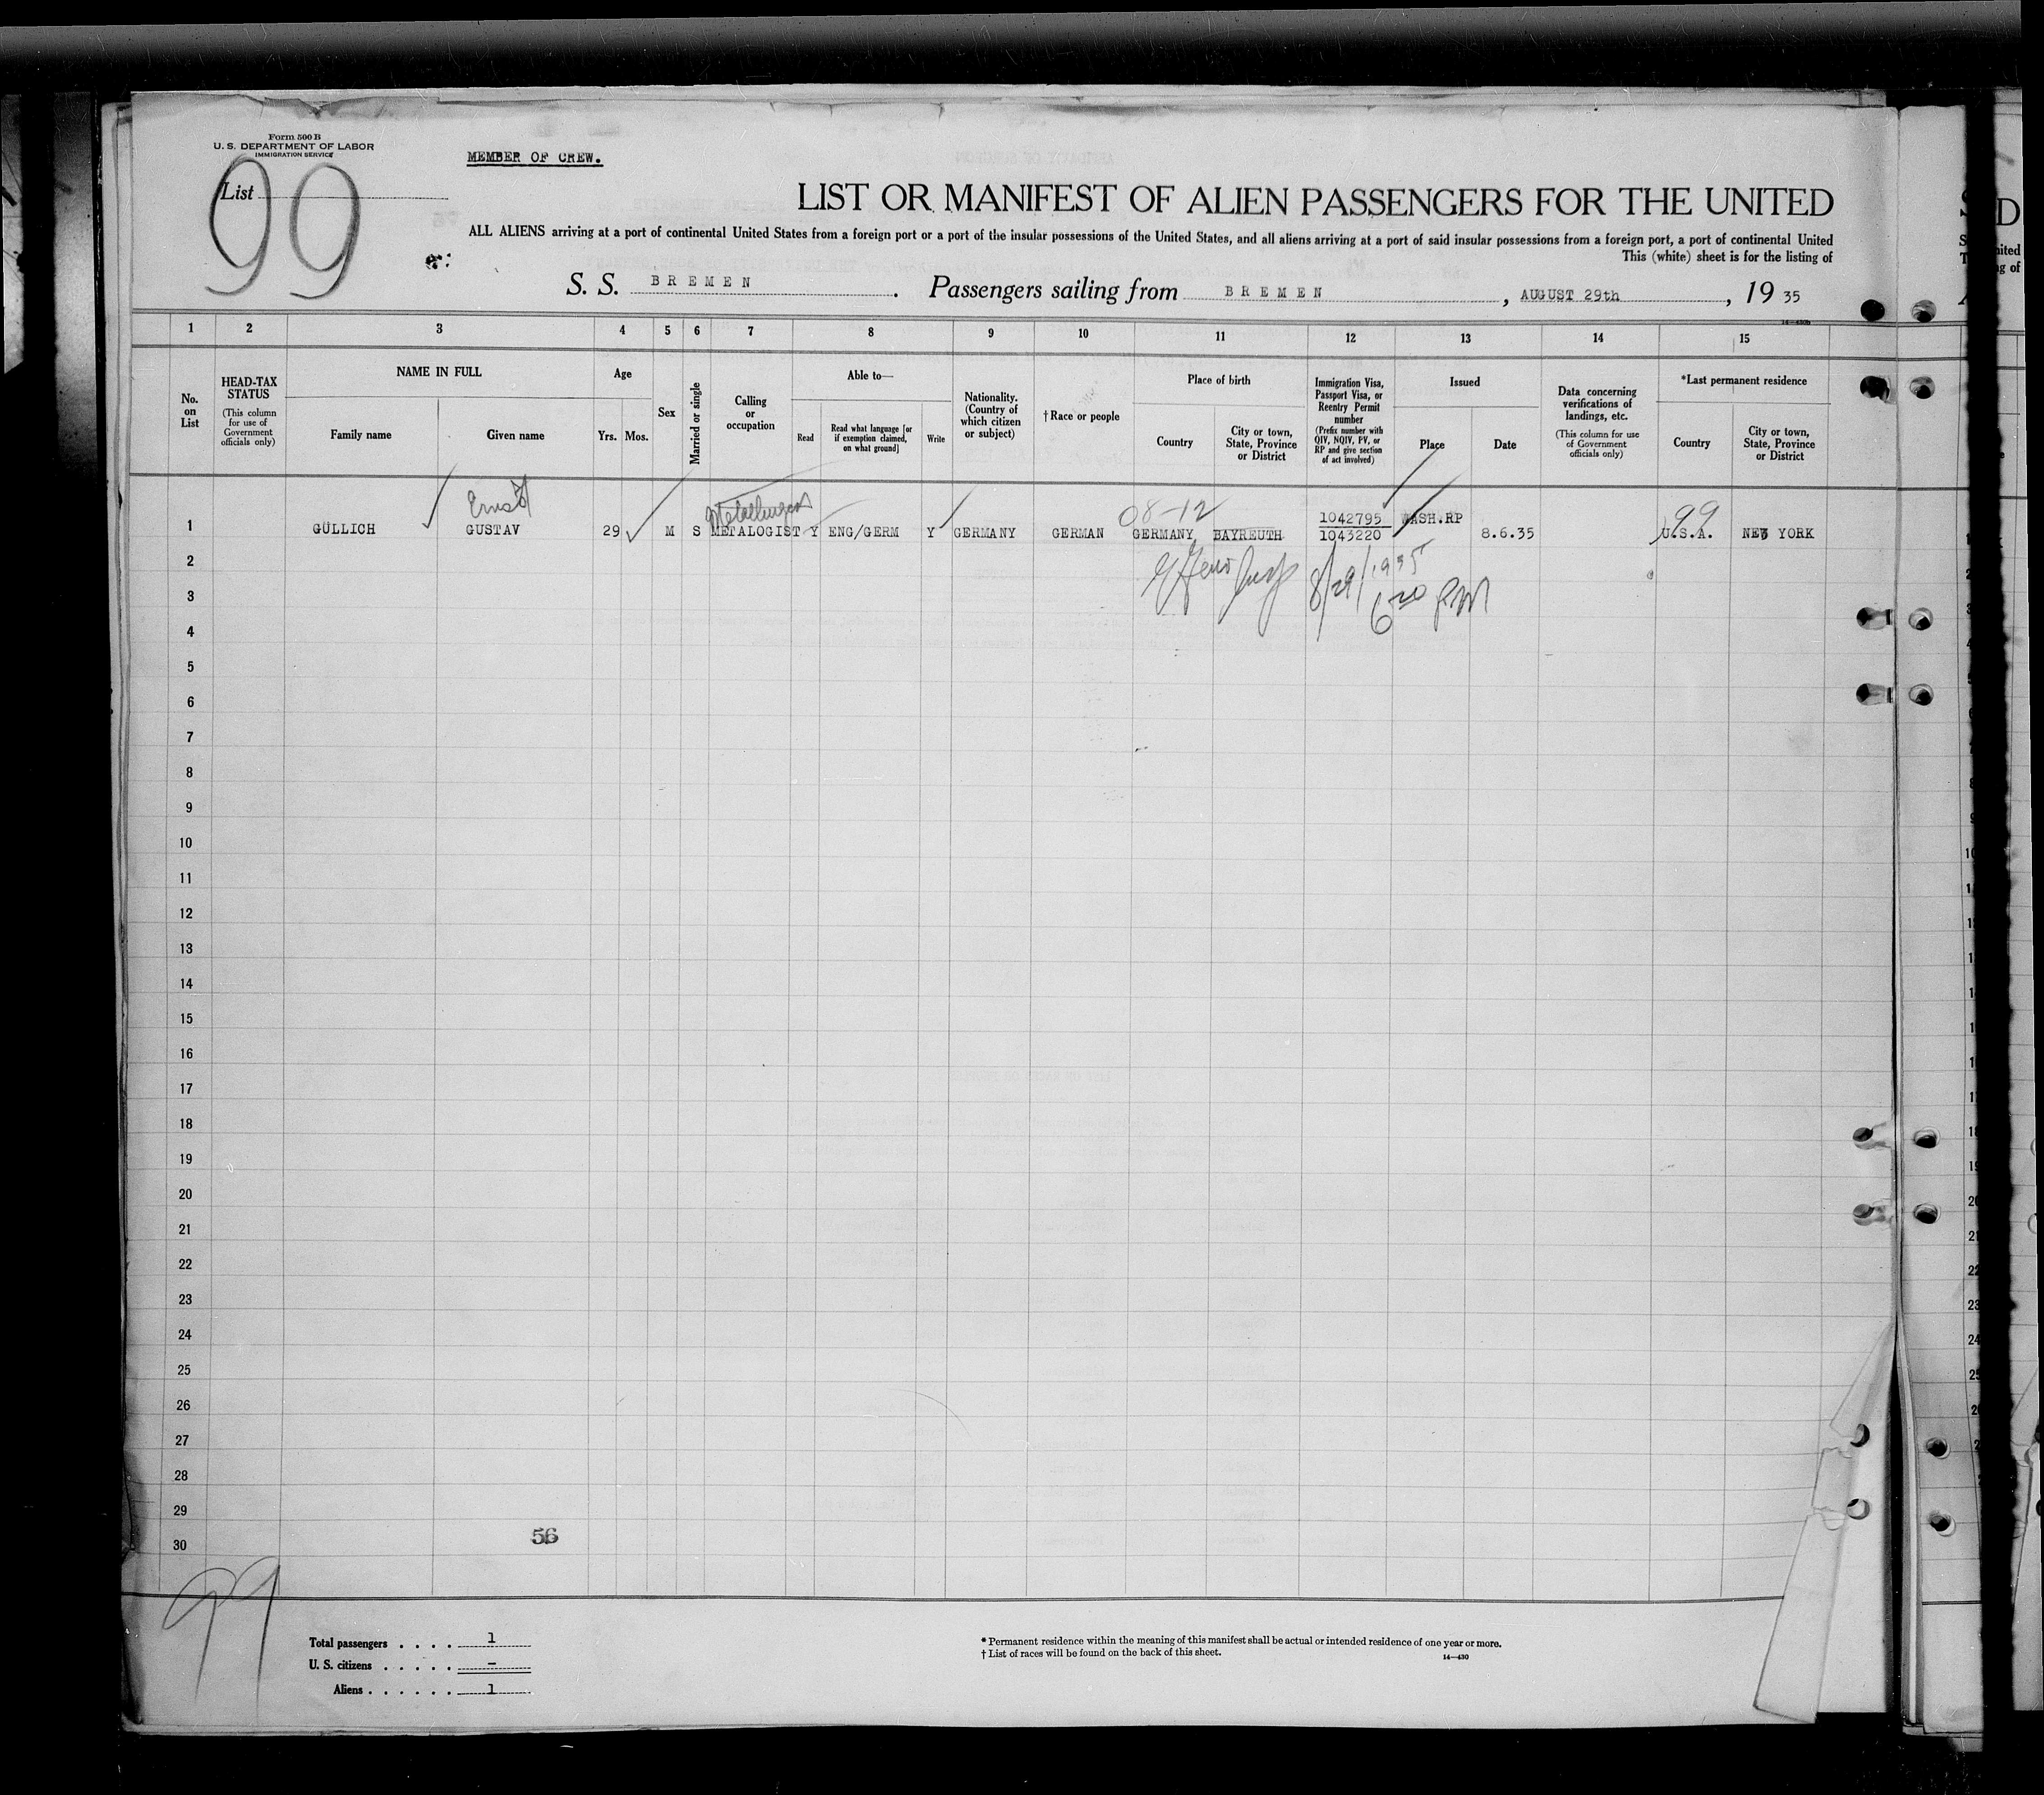 Form 500 B
U. S. DEPARTMENT OF LABOR
IMMIGRATION SERVICE
MEMBER OF CREW.
List
99
LIST OR MANIFEST OF ALIEN PASSENGERS FOR THE UNITED
ALL ALIENS arriving at a port of continental United States from a foreign port or a port of the insular possessions of the United States, and all aliens arriving at a port of said insular possessions from a foreign port, a port of continental United
This (white) sheet is for the listing of
S. S. BREMEN. Passengers sailing from BREMEN, AUGUST 29th, 19 35
1 2 3 4 5 6 7 8 9 10 11 12 13 14 15
No. on List
HEAD-TAX STATUS
(This column for use of Government officials only)
NAME IN FULL
Family name
Given name
Age
Yrs. Mos.
Sex
Married or single
Calling or occupation
Able to—
Read
Read what language [or if exemption claimed, on what ground]
Write
Nationality. (Country of which citizen or subject)
†Race or people
Place of birth
Country
City or town, State, Province or District
Immigration Visa, Passport Visa, or Reentry Permit number
(Prefix number with QIV, NQIV, PV, or RP and give section of act involved)
Issued
Place
Date
Data concerning verifications of landings, etc.
(This column for use of Government officials only)
*Last permanent residence
Country
City or town, State, Province or District
Ernst
08-12
99
1042795 WASH.RP
1 GÜLLICH GUSTAV 29 M S METALOGIST Y ENG/GERM Y GERMANY GERMAN GERMANY BAYREUTH 1043220 8.6.35 U.S.A. NEW YORK
8/29/1935
6 20 PM
2
3
4
5
6
7
8
9
10
11
12
13
14
15
16
17
18
19
20
21
22
23
24
25
26
27
28
29
30
56
99
Total passengers . . . . 1
U. S. citizens . . . . . –
Aliens . . . . . . 1
* Permanent residence within the meaning of this manifest shall be actual or intended residence of one year or more.
† List of races will be found on the back of this sheet.
14—430